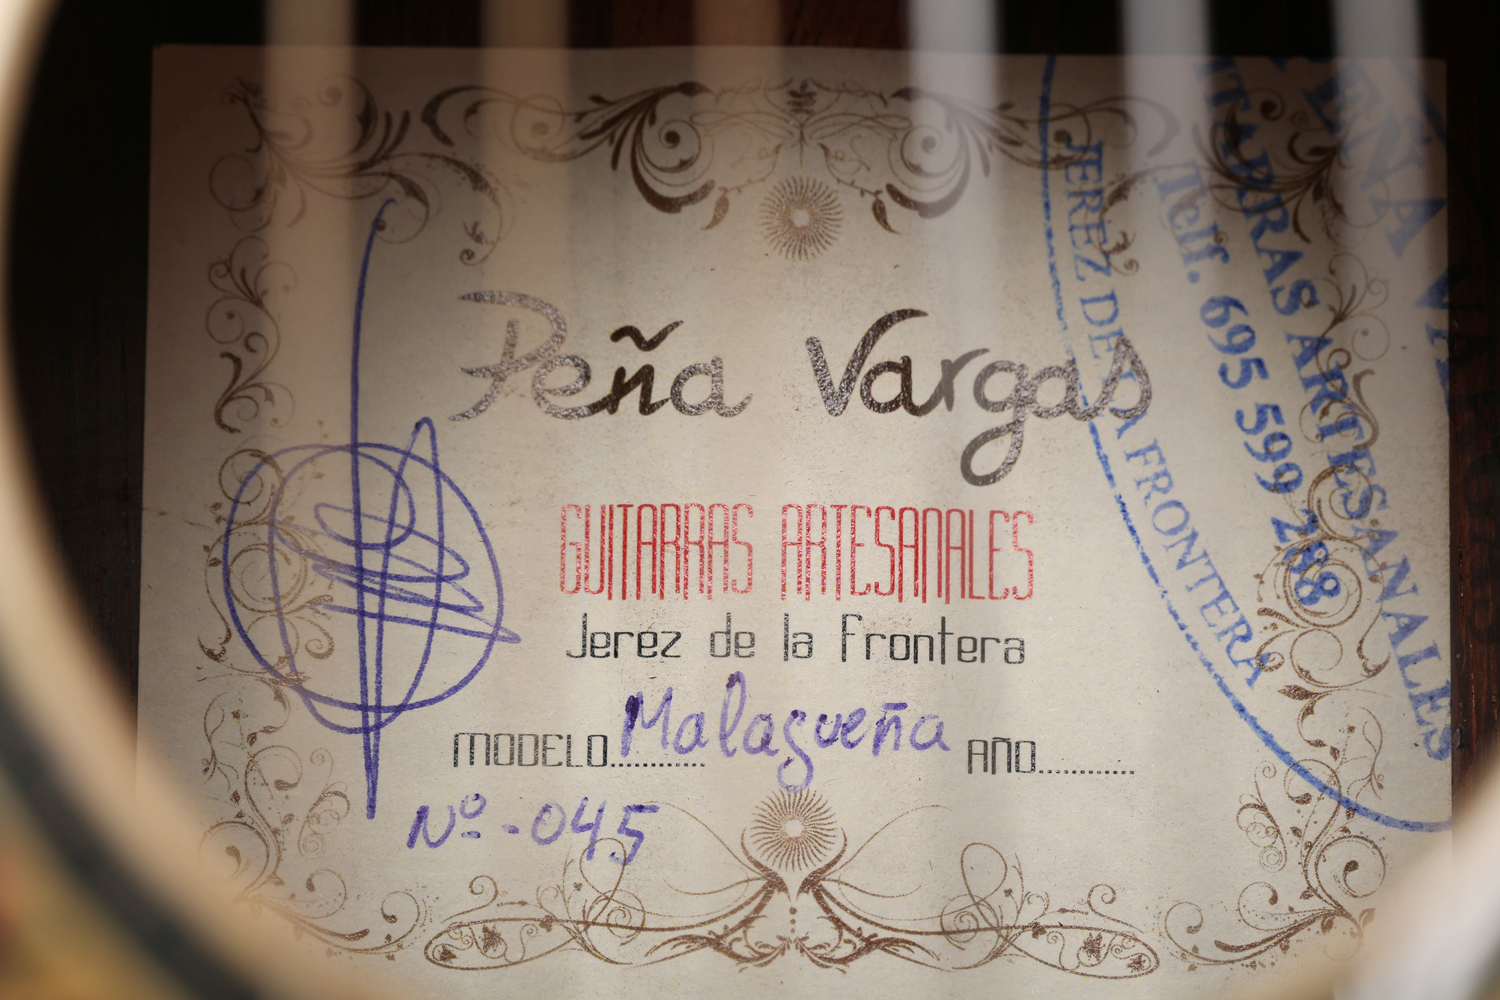 Peña Vargas
GUITARRAS ARTESANALES
Jerez de la frontera
MODELO.......... Malagueña AÑO..........
Nº - 045
PEÑA VA
ITARRAS ARTESANALES
Telf. 695 599 288
JEREZ DE LA FRONTERA